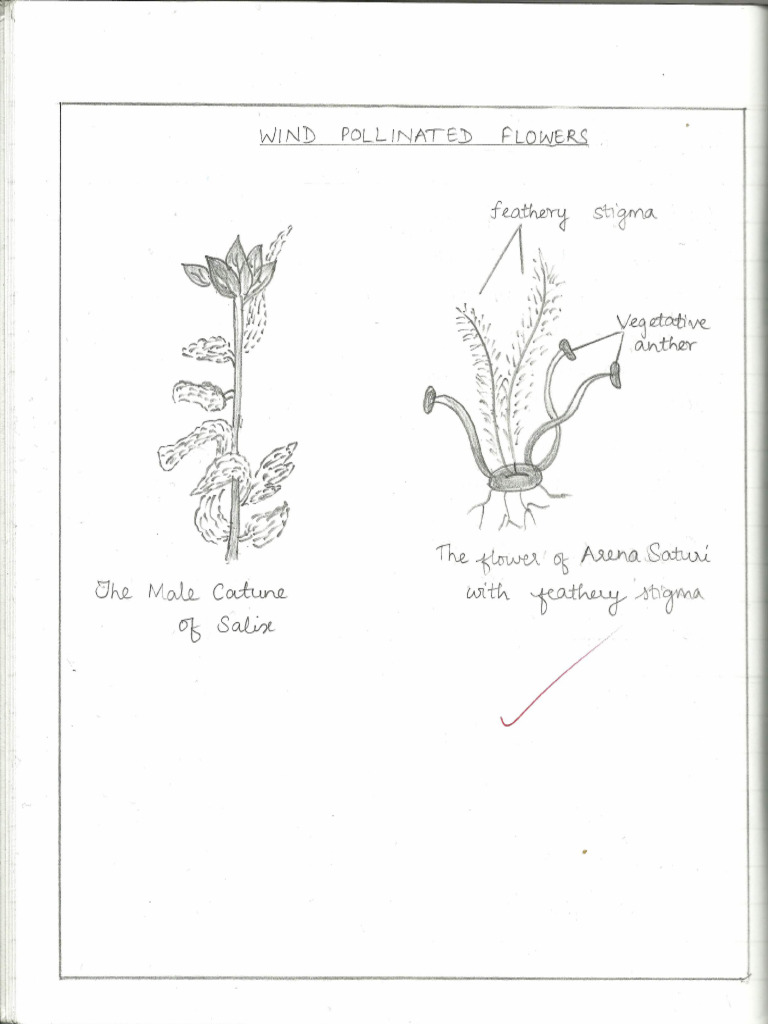 WIND POLLINATED FLOWERS
feathery stigma
Vegetative
anther
The Male Catune
of Salix
The flower of Arena Saturi
with feathery stigma